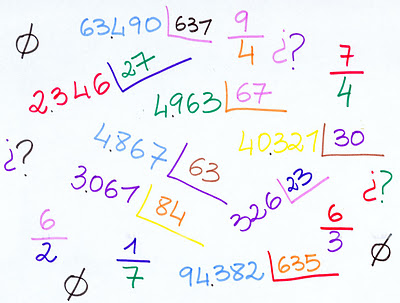 ø 63.490 637 9/4 ¿?
2.346 27 4.963 67 7/4
¿? 4.867 63 40.321 30
3.061 84 326 23 ¿?
6/2 1/7 6/3
ø 94.382 635 ø